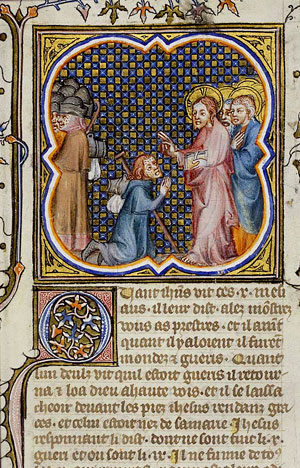 Quant ihus vit ces .x. mesiaus . il leur dist . alez mostrez
vous as prestres . et il avint
quant il y aloient il furent
mondez et gueris . Quant
lun deuls vit quil estoit gueris il retorna
et loa dieu a haute vois . et il se laissa
cheoir devant les piez ihesus rendanz graces .
et celui estoit nez de samarie . Ihesus
respoignant li dist . dont ne sont tuit li .x.
gueri et ou sont li .ix. Il ne